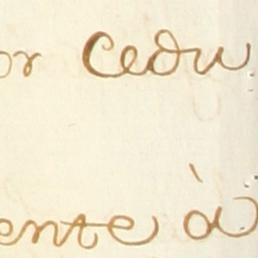 or Cedu
ente à